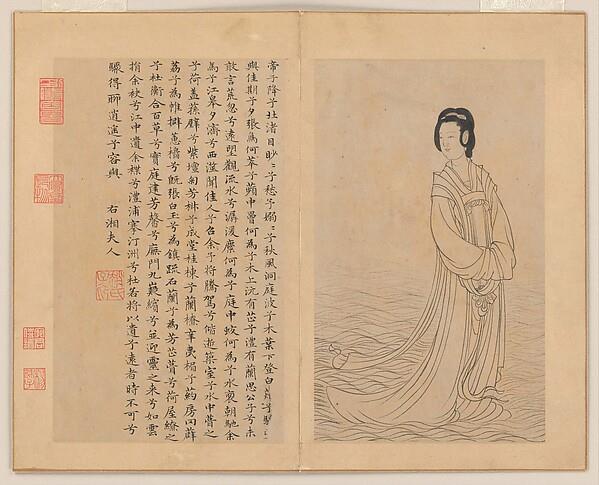 帝子降兮北渚目眇〻兮愁予嫋〻兮秋風洞庭波兮木葉下登白薠兮騁
與佳期兮夕張鳥何萃兮蘋中罾何為兮木上沅有芷兮澧有蘭思公子兮未
敢言荒忽兮遠望觀流水兮潺湲麋何為兮庭中蛟何為兮水裔朝馳余
馬兮江皋夕濟兮西澨聞佳人兮召余將騰駕兮偕逝築室兮水中葺之
兮荷蓋蓀壁兮紫壇匊芳椒兮成堂桂棟兮蘭橑辛夷楣兮葯房罔薜
荔兮為帷擗蕙櫋兮既張白玉兮為鎮疏石蘭兮為芳芷葺兮荷屋繚之
兮杜衡合百草兮實庭建芳馨兮廡門九嶷繽兮並迎靈之來兮如雲
捐余袂兮江中遺余褋兮澧浦搴汀洲兮杜若將以遺兮遠者時不可兮
驟得聊逍遙兮容與
右湘夫人